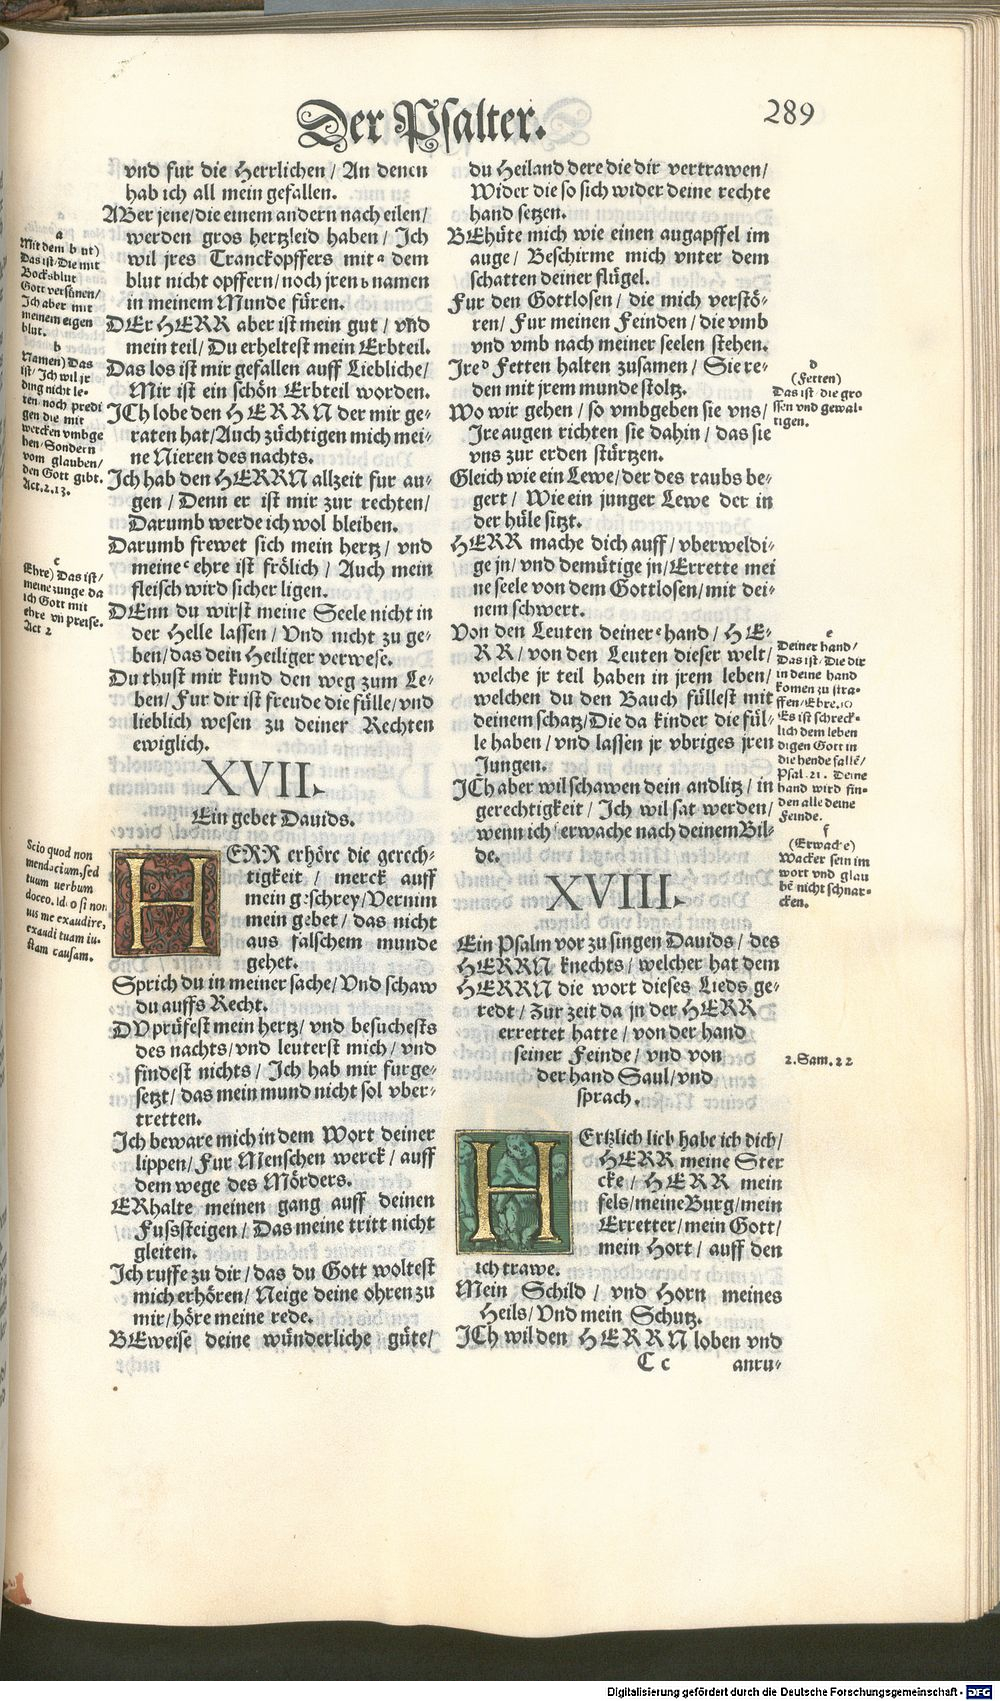 Der Psalter.
289
vnd fur die Herrlichen / An denen
hab ich all mein gefallen.
ABer jene / die einem andern nach eilen /
werden gros hertzleid haben / Ich
wil jres Tranckopffers mit a dem
blut nicht opffern / noch jren b namen
in meinem Munde füren.
DEr HERR aber ist mein gut / vnd
mein teil / Du erheltest mein Erbteil.
Das los ist mir gefallen auff Liebliche /
Mir ist ein schön Erbteil worden.
ICh lobe den HERRN der mir ge-
raten hat / Auch züchtigen mich mei-
ne Nieren des nachts.
Ich hab den HERRN allzeit fur au-
gen / Denn er ist mir zur rechten /
Darumb werde ich wol bleiben.
Darumb frewet sich mein hertz / vnd
meine c ehre ist frölich / Auch mein
fleisch wird sicher ligen.
DEnn du wirst meine Seele nicht in
der Helle lassen / Vnd nicht zu ge-
ben / das dein Heiliger verwese.
Du thust mir kund den weg zum Le-
ben / Fur dir ist freude die fülle / vnd
lieblich wesen zu deiner Rechten
ewiglich.
XVII.
Ein gebet Dauids.
HERR erhöre die gerech-
tigkeit / merck auff
mein geschrey / Vernim
mein gebet / das nicht
aus falschem munde
gehet.
Sprich du in meiner sache / Vnd schaw
du auffs Recht.
DV prüfest mein hertz / vnd besuchests
des nachts / vnd leuterst mich / vnd
findest nichts / Ich hab mir furge-
setzt / das mein mund nicht sol vber-
tretten.
Ich beware mich in dem Wort deiner
lippen / Fur Menschen werck / auff
dem wege des Mörders.
ERhalte meinen gang auff deinen
Fussteigen / Das meine tritt nicht
gleiten.
Ich ruffe zu dir / das du Gott woltest
mich erhören / Neige deine ohren zu
mir / höre meine rede.
BEweise deine wünderliche güte /
a
Mit dem blut)
Das ist / Die mit
Bocksblut
Gott versünen /
Ich aber mit
meinem eigen
blut.
b
Namen) Das
ist / Ich wil jr
ding nicht le-
ren noch predi
gen die mit
wercken vmbge
hen / Sondern
vom glauben /
den Gott gibt.
Act. 2. 13.
c
Ehre) Das ist /
meine zunge da
ich Gott mit
ehre vñ preise.
Act 2
Scio quod non
mendacium, sed
tuum uerbum
doceo. ideo si non
uis me exaudire,
exaudi tuam iu-
stam causam.
du Heiland dere die dir vertrawen /
Wider die so sich wider deine rechte
hand setzen.
BEhüte mich wie einen augapffel im
auge / Beschirme mich vnter dem
schatten deiner flügel.
Fur den Gottlosen / die mich verstö-
ren / Fur meinen Feinden / die vmb
vnd vmb nach meiner seelen stehen.
Ire d Fetten halten zusamen / Sie re-
den mit jrem munde stoltz.
Wo wir gehen / so vmbgeben sie vns /
Ire augen richten sie dahin / das sie
vns zur erden stürtzen.
Gleich wie ein Lewe / der des raubs be-
gert / Wie ein junger Lewe der in
der hüle sitzt.
HERR mache dich auff / vberweldi-
ge jn / vnd demütige jn / Errette mei
ne seele von dem Gottlosen / mit dei-
nem schwert.
Von den Leuten deiner e hand / HE-
RR / von den Leuten dieser welt /
welche jr teil haben in jrem leben /
welchen du den Bauch füllest mit
deinem schatz / Die da kinder die fül-
le haben / vnd lassen jr vbriges jren
Jungen.
ICh aber wil schawen dein andlitz / in
gerechtigkeit / Ich wil sat werden /
wenn ich f erwache nach deinem Bil-
de.
XVIII.
Ein Psalm vor zu singen Dauids / des
HERRN knechts / welcher hat dem
HERRN die wort dieses Lieds ge-
redt / Zur zeit da jn der HERR
errettet hatte / von der hand
seiner Feinde / vnd von
der hand Saul / vnd
sprach.
HErtzlich lieb habe ich dich /
HERR meine Ster
cke / HERR mein
fels / meine Burg / mein
Erretter / mein Gott /
mein Hort / auff den
ich trawe.
Mein Schild / vnd Horn meines
Heils / Vnd mein Schutz.
ICh wil den HERRN loben vnd
C c anru-
d
(Fetten)
Das ist / die gro
ssen vnd gewal-
tigen.
e
Deiner hand /
Das ist / Die dir
in deine hand
komen zu stra-
ffen / Ebre. 10
Es ist schreck-
lich dem leben
digen Gott in
die hende fallē /
Psal. 21. Deine
hand wird fin-
den alle deine
Feinde.
f
(Erwache)
Wacker sein im
wort vnd glau
bē nicht schnar-
cken.
2. Sam. 22
Digitalisierung gefördert durch die Deutsche Forschungsgemeinschaft - DFG